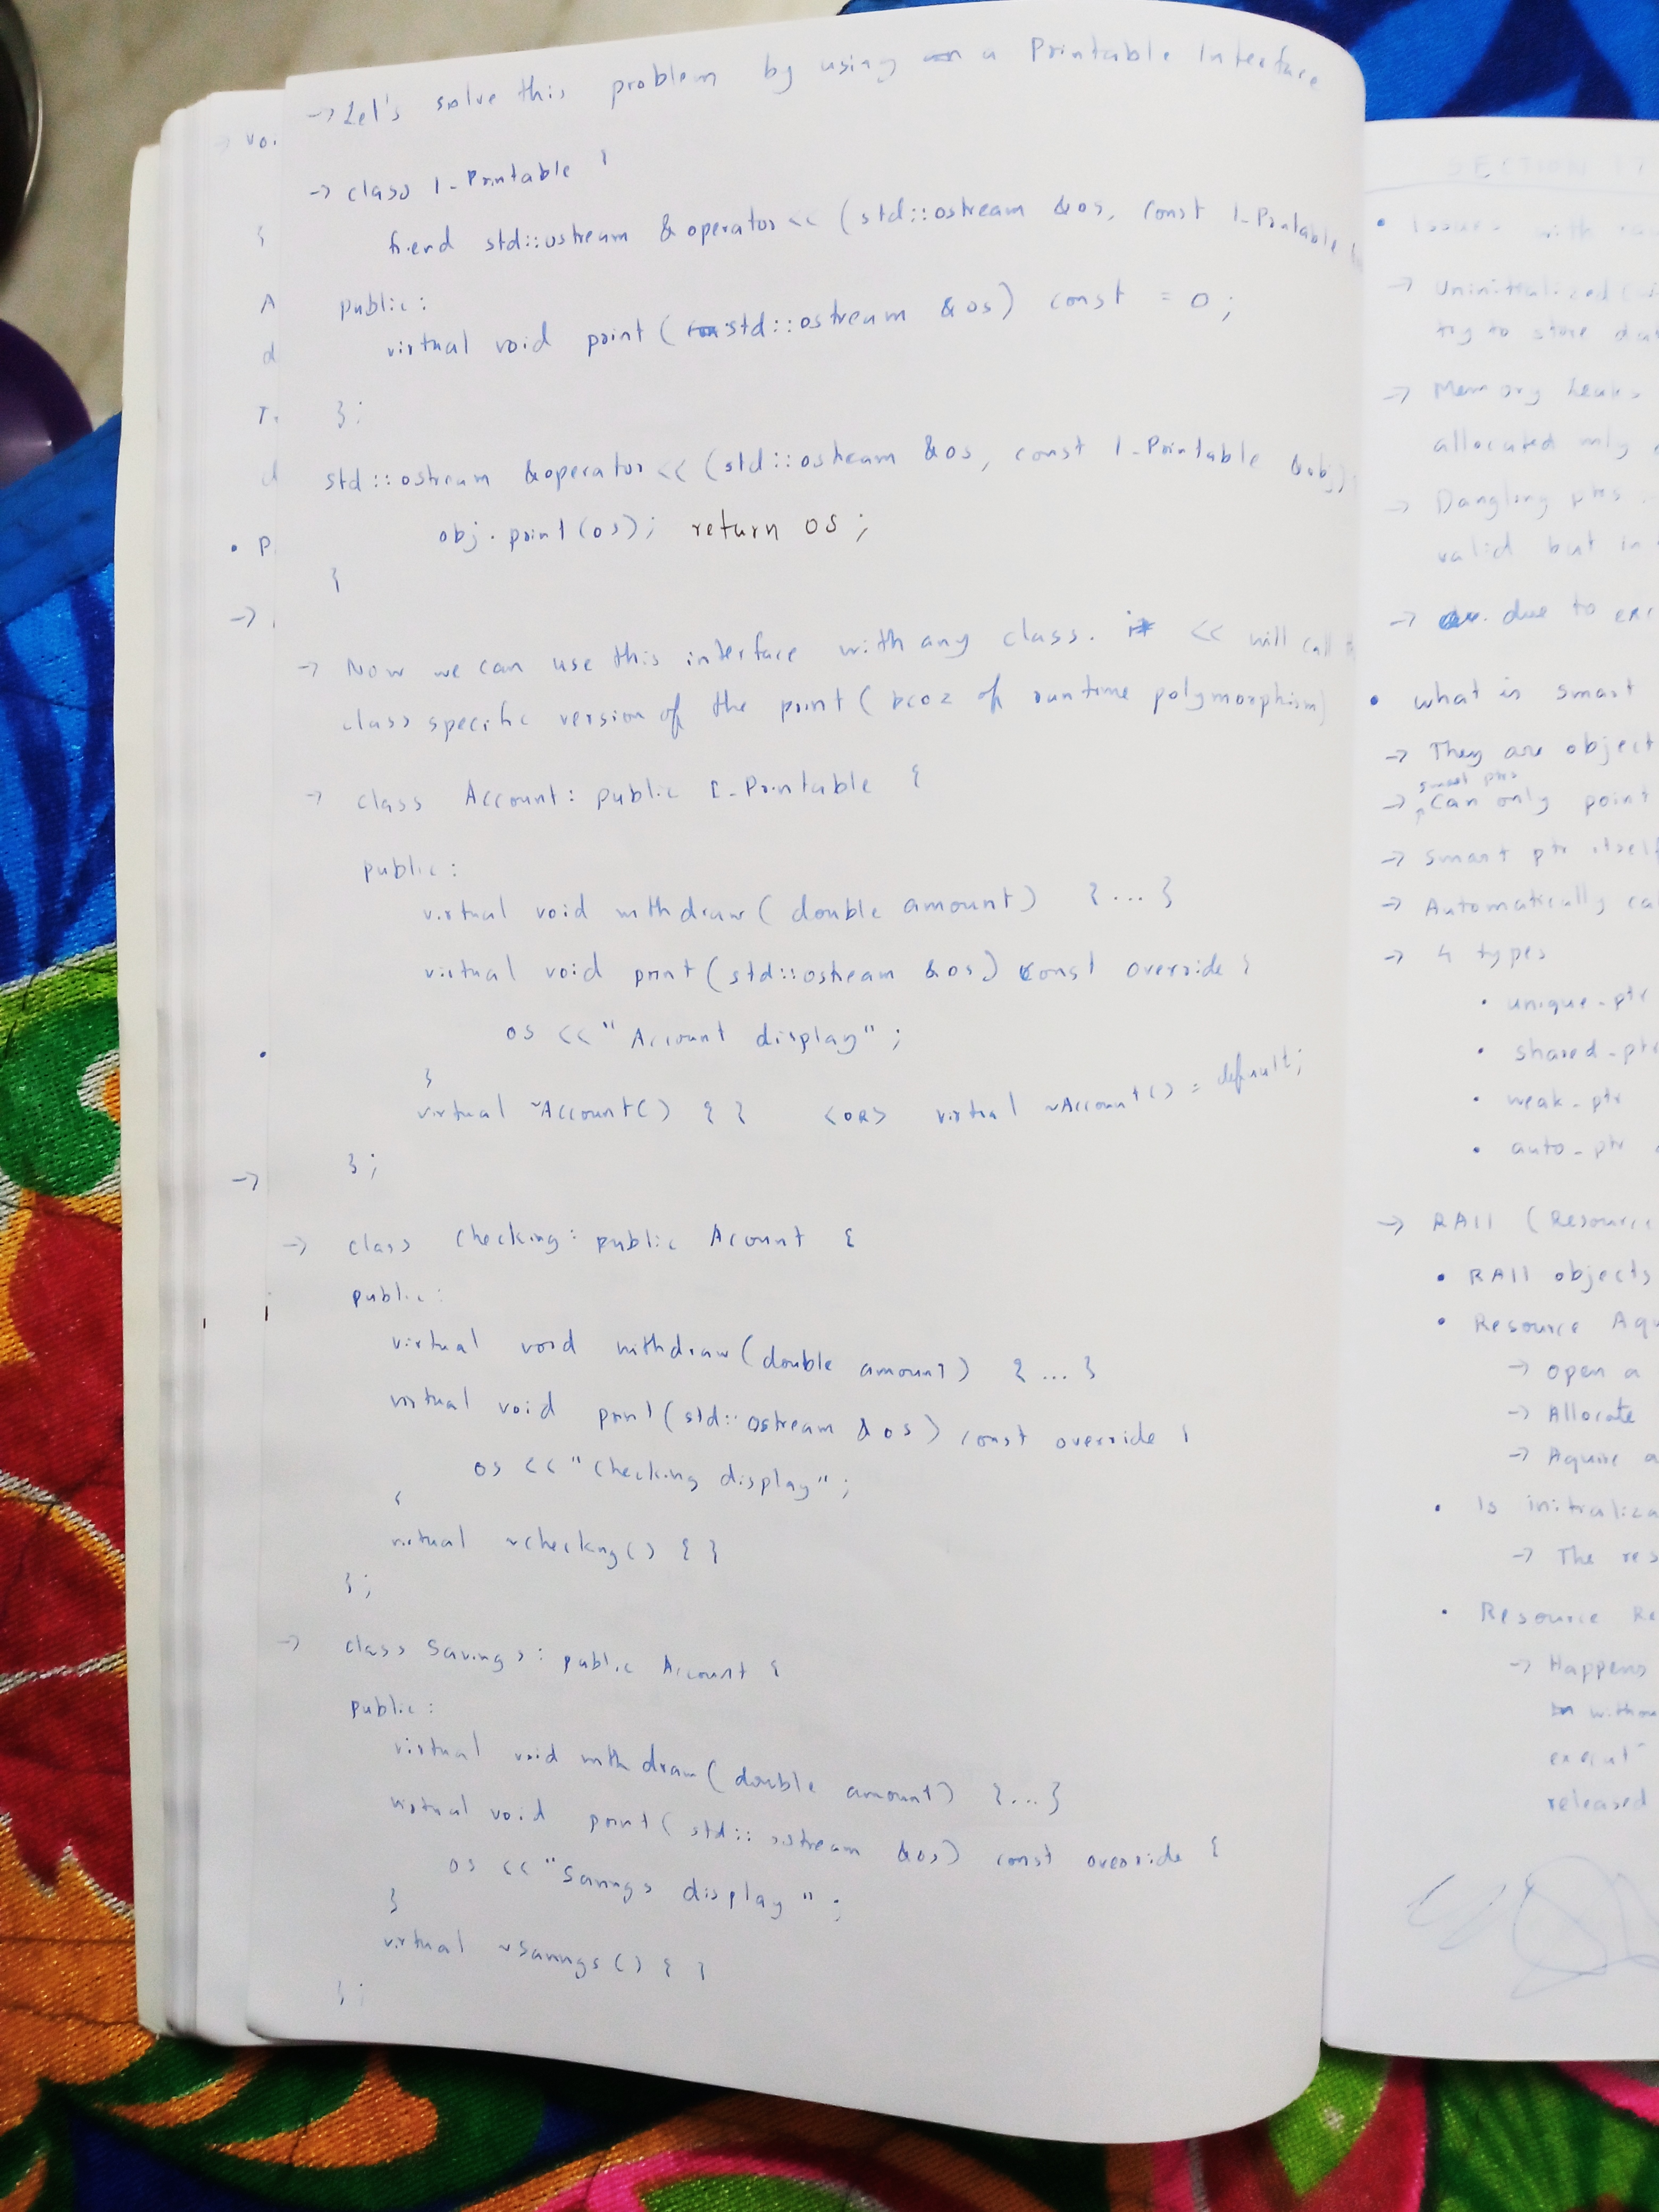 → Let's solve this problem by using a Printable Interface
→ class I_Printable {
friend std::ostream &operator<< (std::ostream &os, const I_Printable
public:
virtual void print(std::ostream &os) const = 0;
};
std::ostream &operator<< (std::ostream &os, const I_Printable &obj)
obj.print(os); return os;
}
→ Now we can use this interface with any class. << will call
class specific version of the print (bcoz of runtime polymorphism)
→ class Account: public I_Printable {
public:
virtual void withdraw(double amount) {...}
virtual void print(std::ostream &os) const override {
os << "Account display";
}
virtual ~Account() { } <OR> virtual ~Account() = default;
};
→ class Checking: public Acount {
public:
virtual void withdraw(double amount) {...}
virtual void print(std::ostream &os) const override {
os << "Checking display";
}
virtual ~checkng() { }
};
→ class Savings: public Account {
public:
virtual void withdraw(double amount) {...}
virtual void print(std::ostream &os) const override {
os << "Savings display";
}
virtual ~Savings() { }
};
SECTION
• Issues with
→ Uninitialized
try to store
→ Memory leaks
allocated only
→ Dangling ptrs
valid but in
→ due to
• what is smart
→ They are object
smart ptrs
→ Can only point
→ smart ptr itself
→ Automatically
→ 4 types
• unique-ptr
• shared-ptr
• weak-ptr
• auto-ptr
→ RAII (Resource
• RAII objects
• Resource
→ open a
→ Allocate
→ Aquire
• Is
→ The
• Resource
→ Happens
released